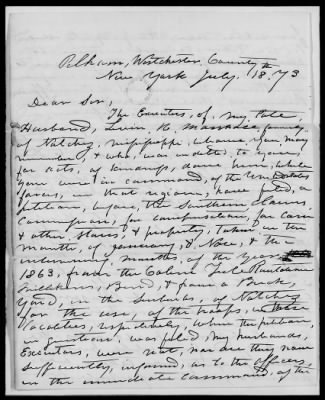 Pelham, Westchester County
New York July 18th 73
Dear Sir,
The Executors, of my late,
Husband, Levin R. Marshall, formerly
of Natchez, Mississippi, whom, you may
remember, & who, was indebted, to you,
for acts, of kindness, done him, while
you were in command, of the United States
forces, in that region, have filed, a
petition, before, the Southern Claims
Commission, for compensation, for corn
& other stores & property, taken in the
months, of January, & Nov, & the
intervening months, of the year
1863, from the
and, & from a Brick,
Yard, in the suburbs, of Natchez
for the use, of the troops, in those
localities, respectively, When the petition,
in question, was filed, my husband's,
Executors, were not, nor are they now
sufficiently, informed, as to the officers,
in the immediate command, of the